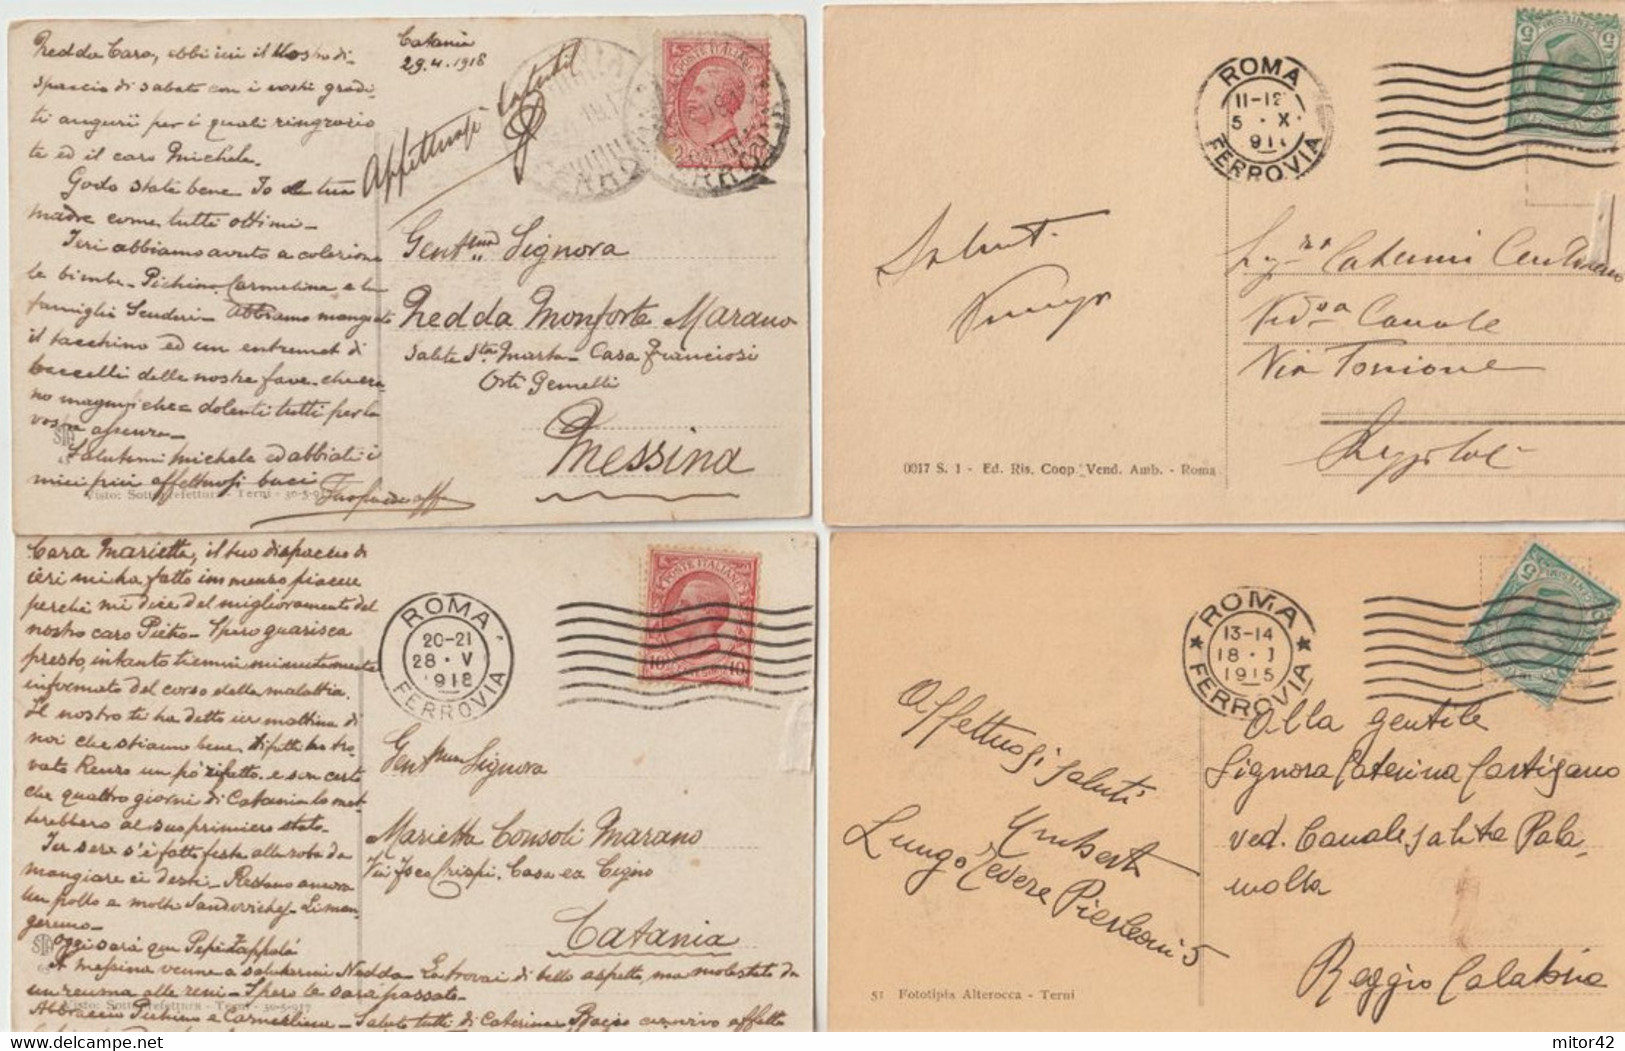 Catania
29.4.1918
Nedda Cara, ebbi ieri il Vostro di-
spaccio di sabato con i vostri gradi-
ti augurii per i quali ringrazio
te ed il caro Michele.
Godo state bene Io e tua
madre come tutti ottimi-
Ieri abbiamo avuto a colazione
le bimbe- Pichino, Carmelina e la
famiglia Scuderi- Abbiamo mangiato
il tacchino ed un entremet di
baccelli delle nostre fave- che era-
no magnifiche e dolenti tutti per la
vostra assenza-
Salutami Michele ed abbiati i
miei più affettuosi baci
Visto: Sottoprefettura - Terni - 30-5-917
Affettuosi saluti
POSTE ITALIANE
Gent.ma Signora
Nedda Monforte Marano
Salita Sta Marta- Casa Franciosi
Orti Gemelli
Messina
ROMA
11-12
5 · X
911
FERROVIA
5
Saluti
Vedova Canale
0017 S. 1 - Ed. Ris. Coop. Vend. Amb. - Roma
Cara Marietta, il tuo dispaccio di
ieri mi ha fatto immenso piacere
perchè mi dice del miglioramento del
nostro caro Pietro- Spero guarisca
presto, intanto tiemmi minutamente
informato del corso della malattia.
Il nostro ti ha detto ier mattina di
noi che stiamo bene. Difatti ho tro-
vato Renzo un pò rifatto. e son certo
che quattro giorni di Catania lo met-
terebbero al suo primiero stato-
Ier sera s'è fatta festa alla roba da
mangiare ci desti- Restano ancora
un pollo e molti Sandwichs- Li man-
geremo-
Oggi sarà qua Pepi Zappalà
A Messina venne a salutarmi Nedda- La trovai di bello aspetto, ma molestata da
un reuma alle reni- Spero le sarà passato-
Visto: Sottoprefettura - Terni - 30-5-917
Abbraccio Pichino e Carmelina- Saluto tutti di Caterina
ROMA
20-21
28 · V
918
FERROVIA
POSTE ITALIANE
10 10
Gent.ma Signora
Marietta Consoli Marano
Via Crispi. Casa ex Cigno
Catania
ROMA
13-14
18 · I
1915
FERROVIA
5
Affettuosi saluti
Umberto
Lungo Tevere Pierleoni 5
Alla gentile
Signora Caterina Cartisano
ved. Canale, salita Pala-
molla
Reggio Calabria
51 Fototipia Alterocca - Terni
mitor42